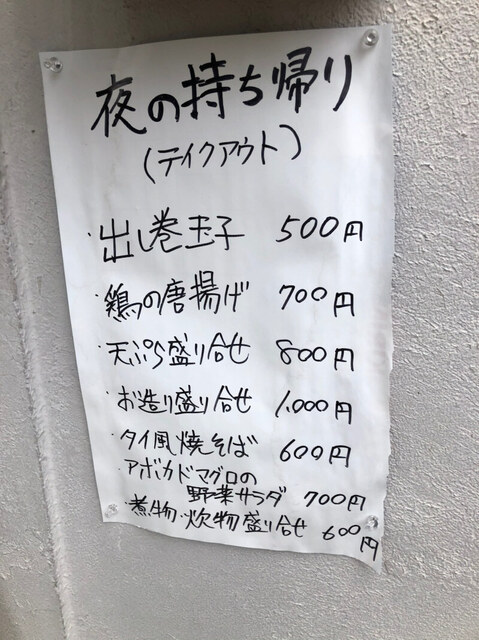 夜の持ち帰り
(テイクアウト)
・出し巻玉子 500円
・鶏の唐揚げ 700円
・天ぷら盛り合せ 800円
・お造り盛り合せ 1.000円
・タイ風焼そば 600円
・アボカドマグロの
野菜サラダ 700円
・煮物・炊物盛り合せ 600円